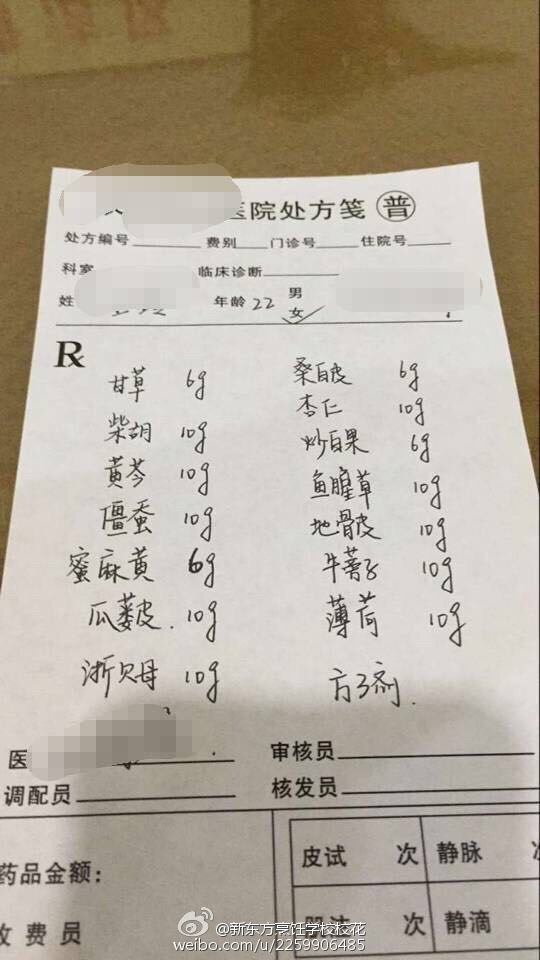 医院处方笺 普
处方编号 费别 门诊号 住院号
科室 临床诊断
姓 年龄 22 男
女 ✓
R
甘草 6g 桑白皮 6g
柴胡 10g 杏仁 10g
黄芩 10g 炒白果 6g
僵蚕 10g 鱼腥草 10g
蜜麻黄 6g 地骨皮 10g
瓜蒌皮. 10g 牛蒡子 10g
浙贝母 10g 薄荷 10g
方3剂.
医 审核员
调配员 核发员
药品金额: 皮试 次 静脉
收费员 次 静滴
@新东方烹饪学校校花
weibo.com/u/2259906485